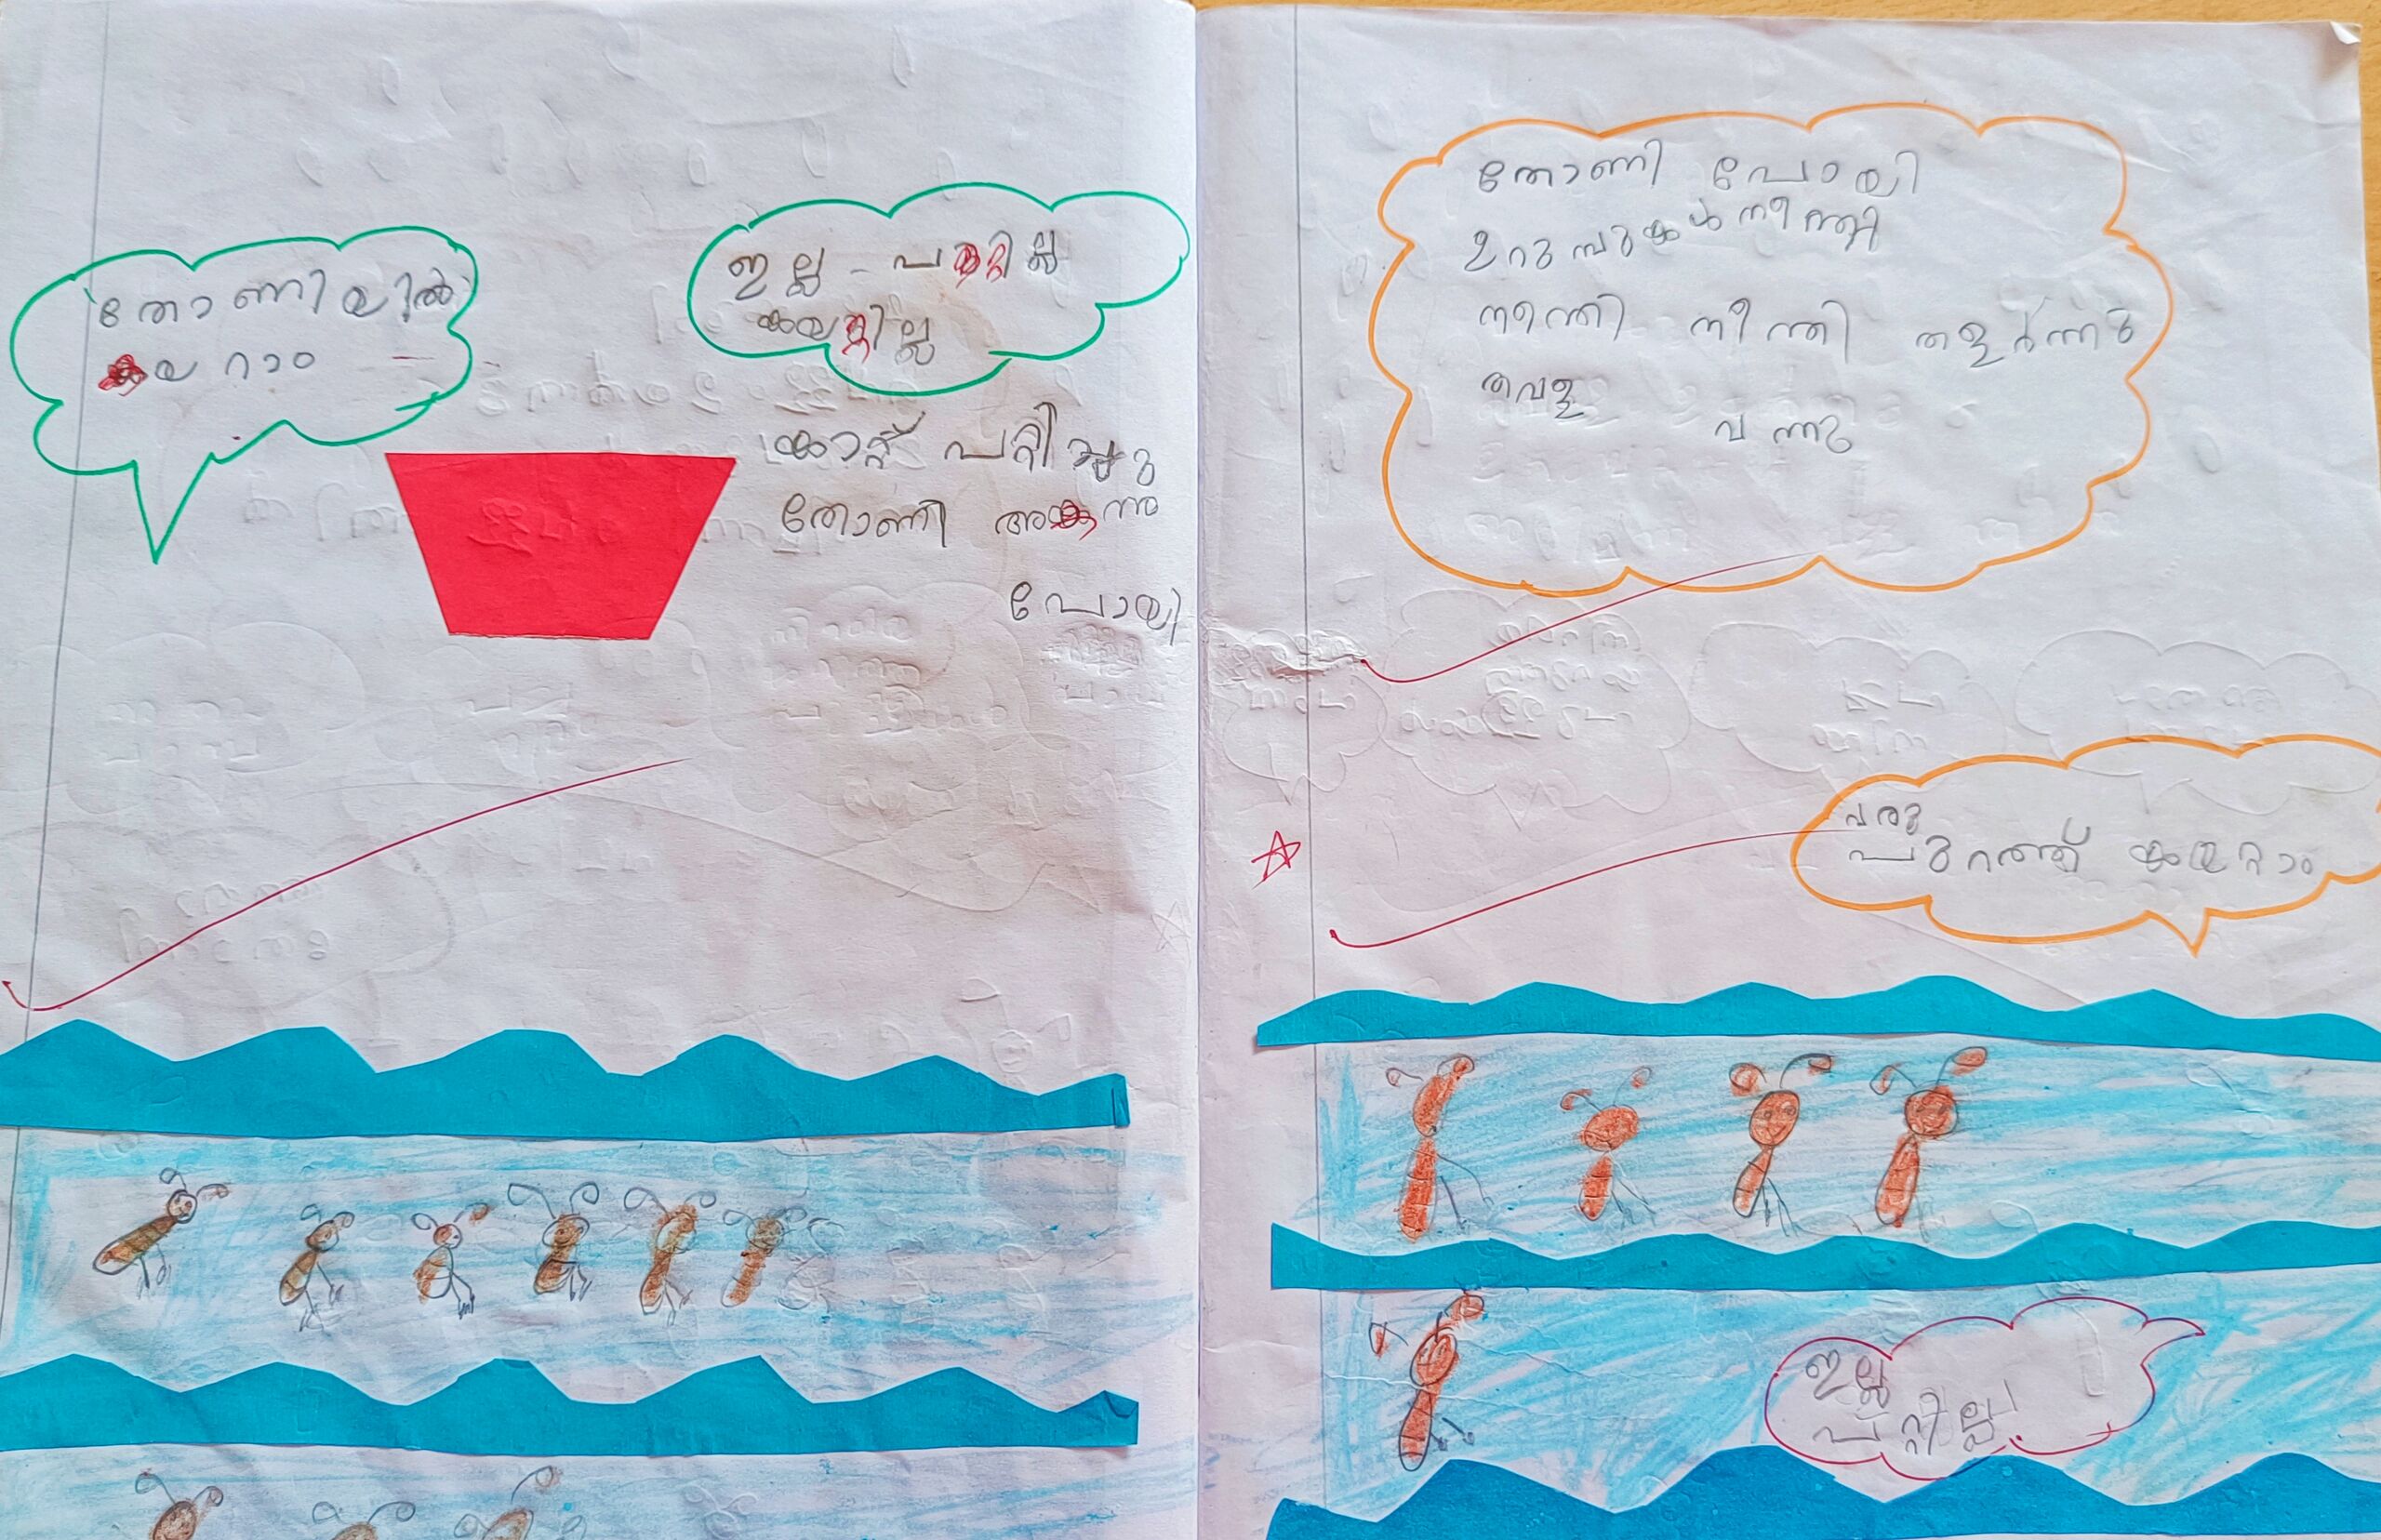 തോണിയിൽ
കയറാം
ഇല്ല - പറ്റില്ല
കയറ്റില്ല
കാറ്റ് പറ്റിച്ചു
തോണി അകന്നു
പോയി
തോണി പോയി
ഉറുമ്പുകൾ നീന്തി
നീന്തി നീന്തി തളർന്നു
തവള
വന്നു
വരു
പുറത്ത് കയറാം
ഇല്ല
പറ്റില്ല